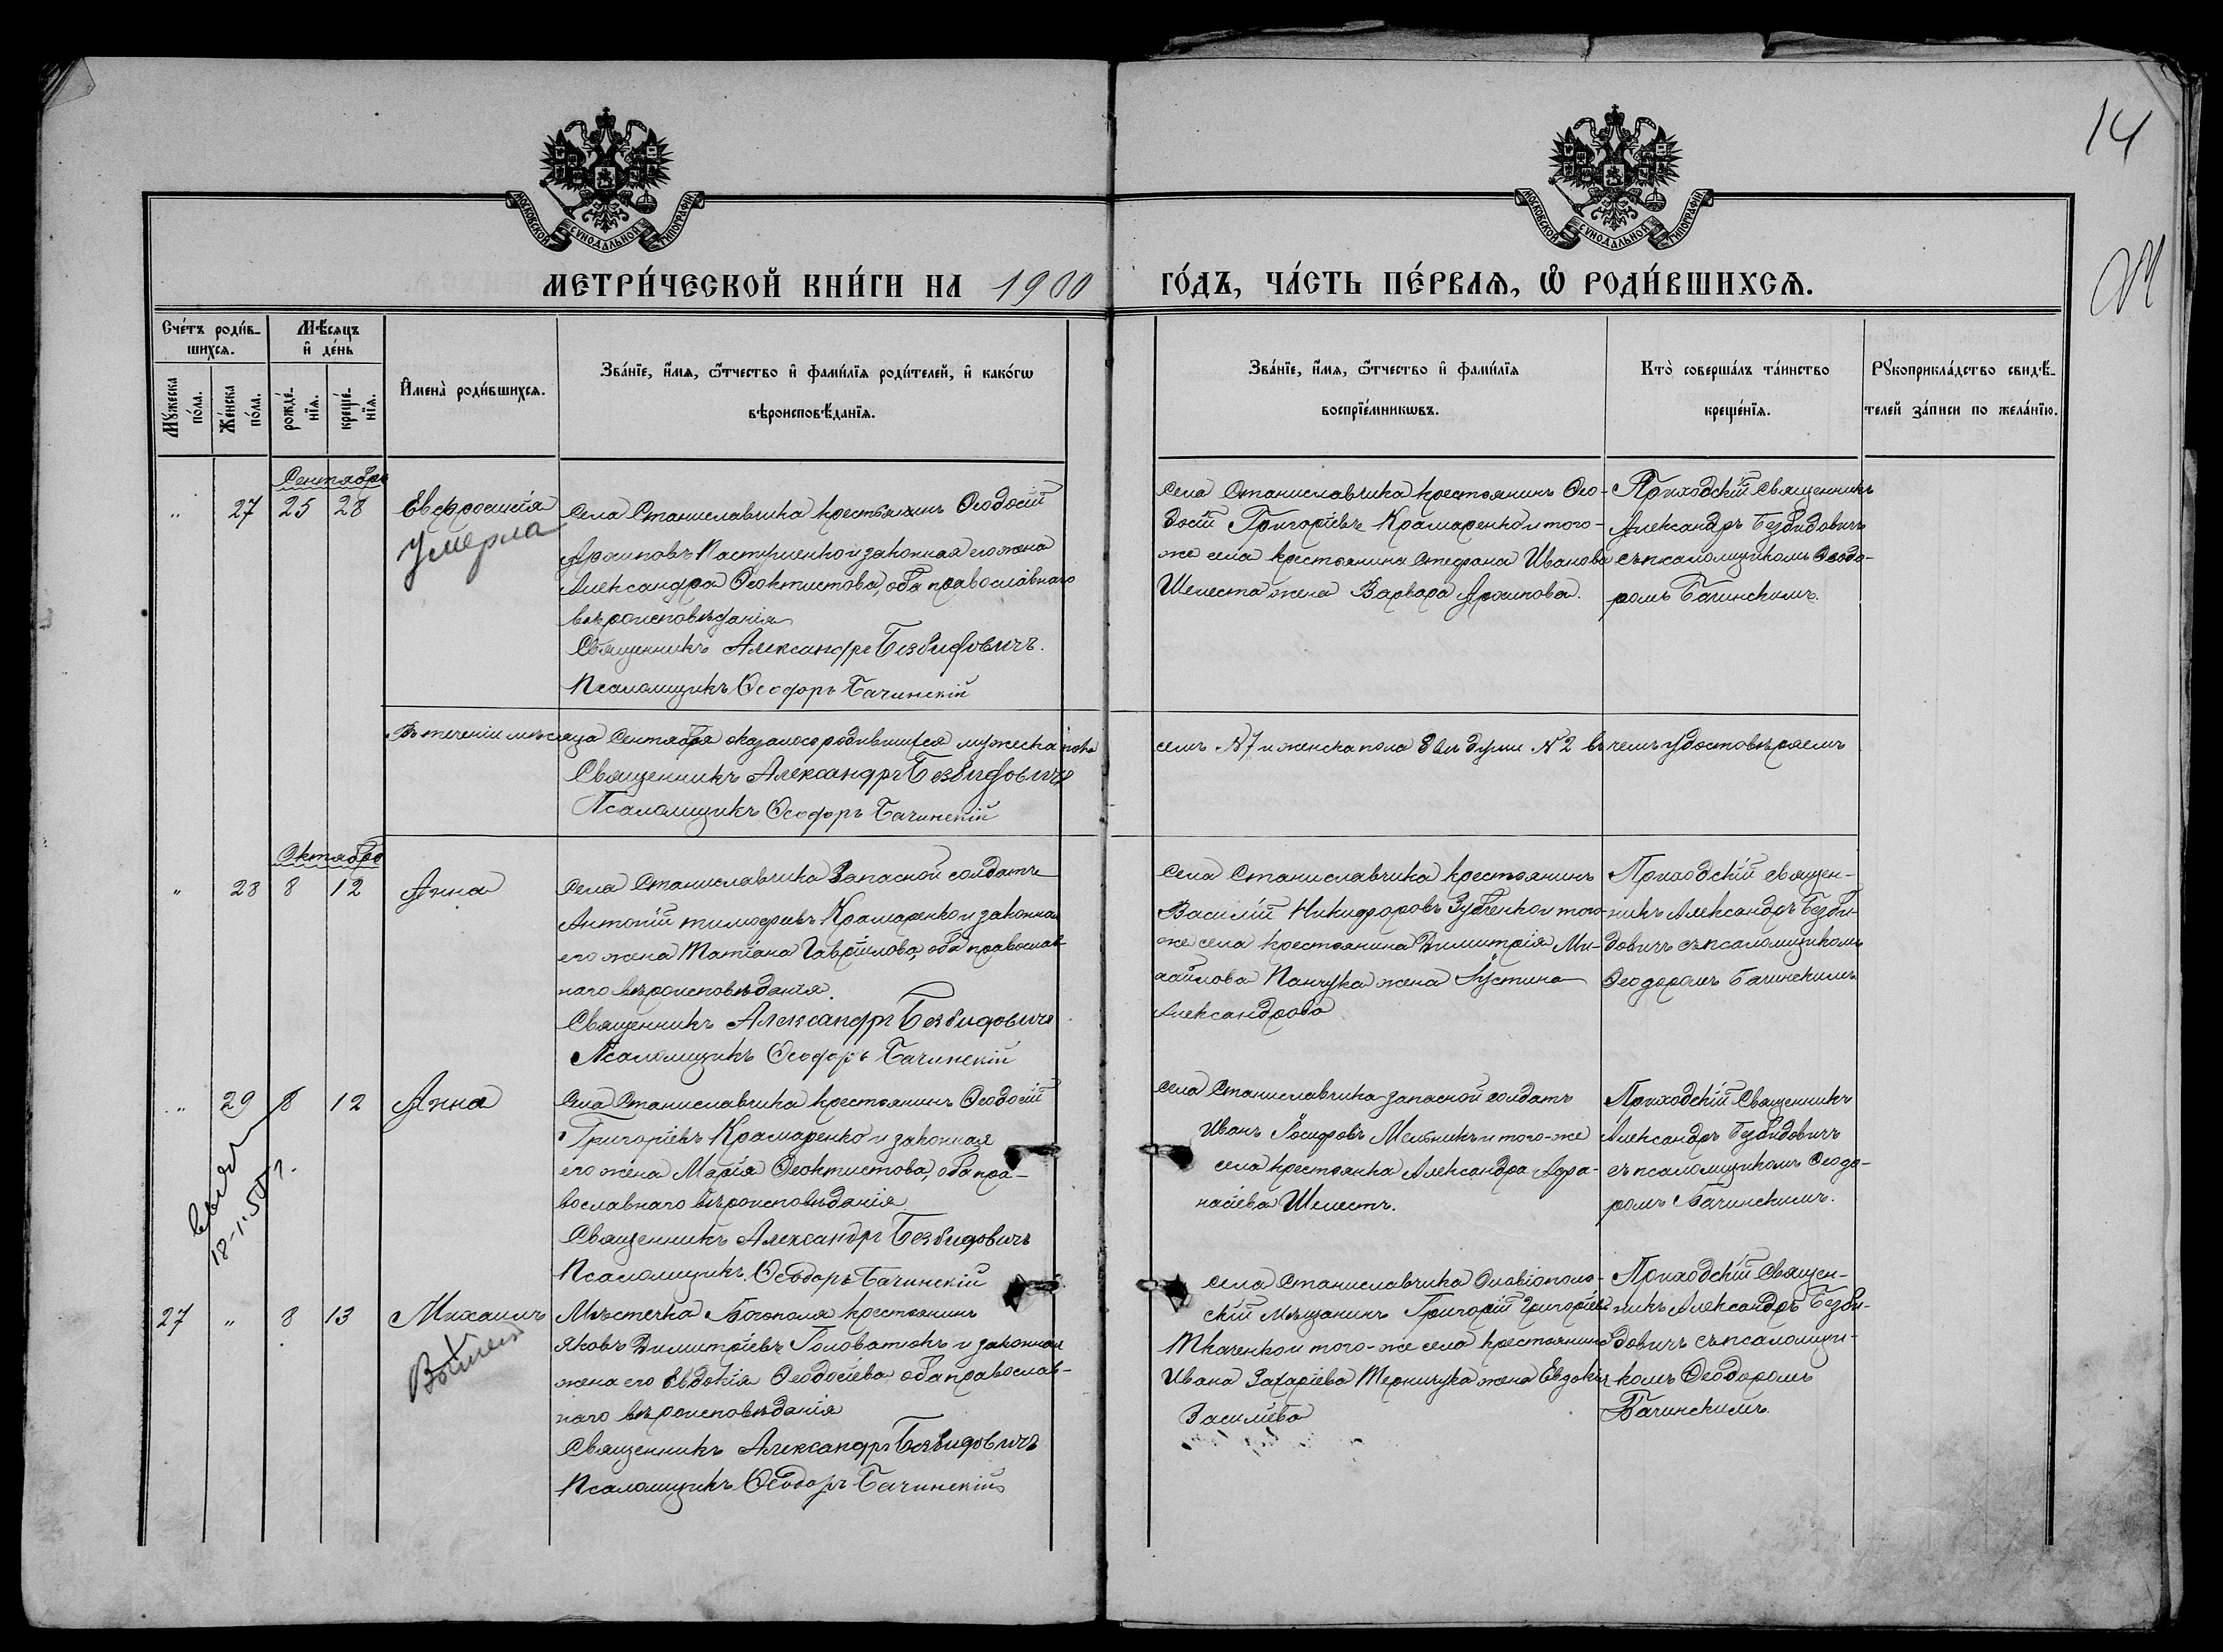 14
МОСКОВСКОЙ СѴНОДАЛЬНОЙ ТИПОГРАФІИ
МОСКОВСКОЙ СѴНОДАЛЬНОЙ ТИПОГРАФІИ
МЕТРИ́ЧЕСКОЙ КНИ́ГИ НА 1900 ГО́ДЪ, ЧА́СТЬ ПЕ́РВАѦ, Ѡ҆ РОДИ́ВШИХСѦ.
Сче́тъ роди́в-
шихсѧ.
Мѣ́сѧцъ
и҆ де́нь
Мꙋ́жеска
по́ла.
Же́нска
по́ла.
рожде́-
нїѧ.
креще́-
нїѧ.
И҆мена̀ роди́вшихсѧ.
Зва́нїе, и҆́мѧ, ѻ҆́тчество и҆ фами́лїѧ роди́телей, и҆ како́гѡ
вѣроисповѣ́данїѧ.
Зва́нїе, и҆́мѧ, ѻ҆́тчество и҆ фами́лїѧ
воспрїе́мникѡвъ.
Кто̀ соверша́лъ та́инство
креще́нїѧ.
Рꙋкоприкла́дство свидѣ́-
телей за́писи по жела́нїю.
Сентябрь
" 27 25 28 Евфросинія
Умерла
Села Станиславчика крестьянинъ Ѳеодосій
Архиповъ Пастушенко и законная его жена
Александра Ѳеоктистова, оба православнаго
вѣроисповѣданія
Священникъ Александръ Безвидовичъ.
Псаломщикъ Ѳеодоръ Бачинскій
Села Станиславчика крестьянинъ Ѳео-
досій Григоріевъ Крамаренко и того-
же села крестьянина Стефана Иванова
Шелеста жена Варвара Архипова.
Приходскій Священникъ
Александръ Безвидовичъ
съ псаломщикомъ Ѳеодо-
ромъ Бачинскимъ.
Въ теченіи мѣсяца Сентября оказалось родившихся мужеска пола семь №7 и женска пола двѣ души №2 въ чемъ удостовѣряемъ
Священникъ Александръ Безвидовичъ
Псаломщикъ Ѳеодоръ Бачинскій
Октябрь
" 28 8 12 Анна
Села Станиславчика Запасной солдатъ
Антоній Тимофеевъ Крамаренко и законная
его жена Татіана Гавріилова, оба православ-
наго вѣроисповѣданія.
Священникъ Александръ Безвидовичъ
Псаломщикъ Ѳеодоръ Бачинскій
Села Станиславчика крестьянинъ
Василій Никифоровъ Зубенко и того-
же села крестьянина Димитрія Ми-
хайлова Панчука жена Іустина
Александрова
Приходскій священ-
никъ Александръ Безви-
довичъ съ псаломщикомъ
Ѳеодоромъ Бачинскимъ
" 29 8 12 Анна
18-1.50 г.
Села Станиславчика крестьянинъ Ѳеодосій
Григоріевъ Крамаренко и законная
его жена Марія Ѳеоктистова, оба пра-
вославнаго вѣроисповѣданія
Священникъ Александръ Безвидовичъ
Псаломщикъ Ѳеодоръ Бачинскій
Села Станиславчика запасной солдатъ
Иванъ Іосифовъ Мельникъ и того-же
села крестьянка Александра Афа-
насіева Шелестъ.
Приходскій Священникъ
Александръ Безвидовичъ
съ псаломщикомъ Ѳеодо-
ромъ Бачинскимъ.
27 " 8 13 Михаилъ
Мѣстечка Богополя крестьянинъ
Яковъ Димитріевъ Головатюкъ и законная
жена его Евдокія Ѳеодосіева оба православ-
наго вѣроисповѣданія
Священникъ Александръ Безвидовичъ
Псаломщикъ Ѳеодоръ Бачинскій
Села Станиславчика Ольвіополь-
скій мѣщанинъ Григорій Григоріевъ
Ткаченко и того-же села крестьянина
Ивана Захаріева Терничука жена Евдокія
Василіева
Приходскій Священ-
никъ Александръ Безви-
довичъ съ псаломщи-
комъ Ѳеодоромъ
Бачинскимъ.